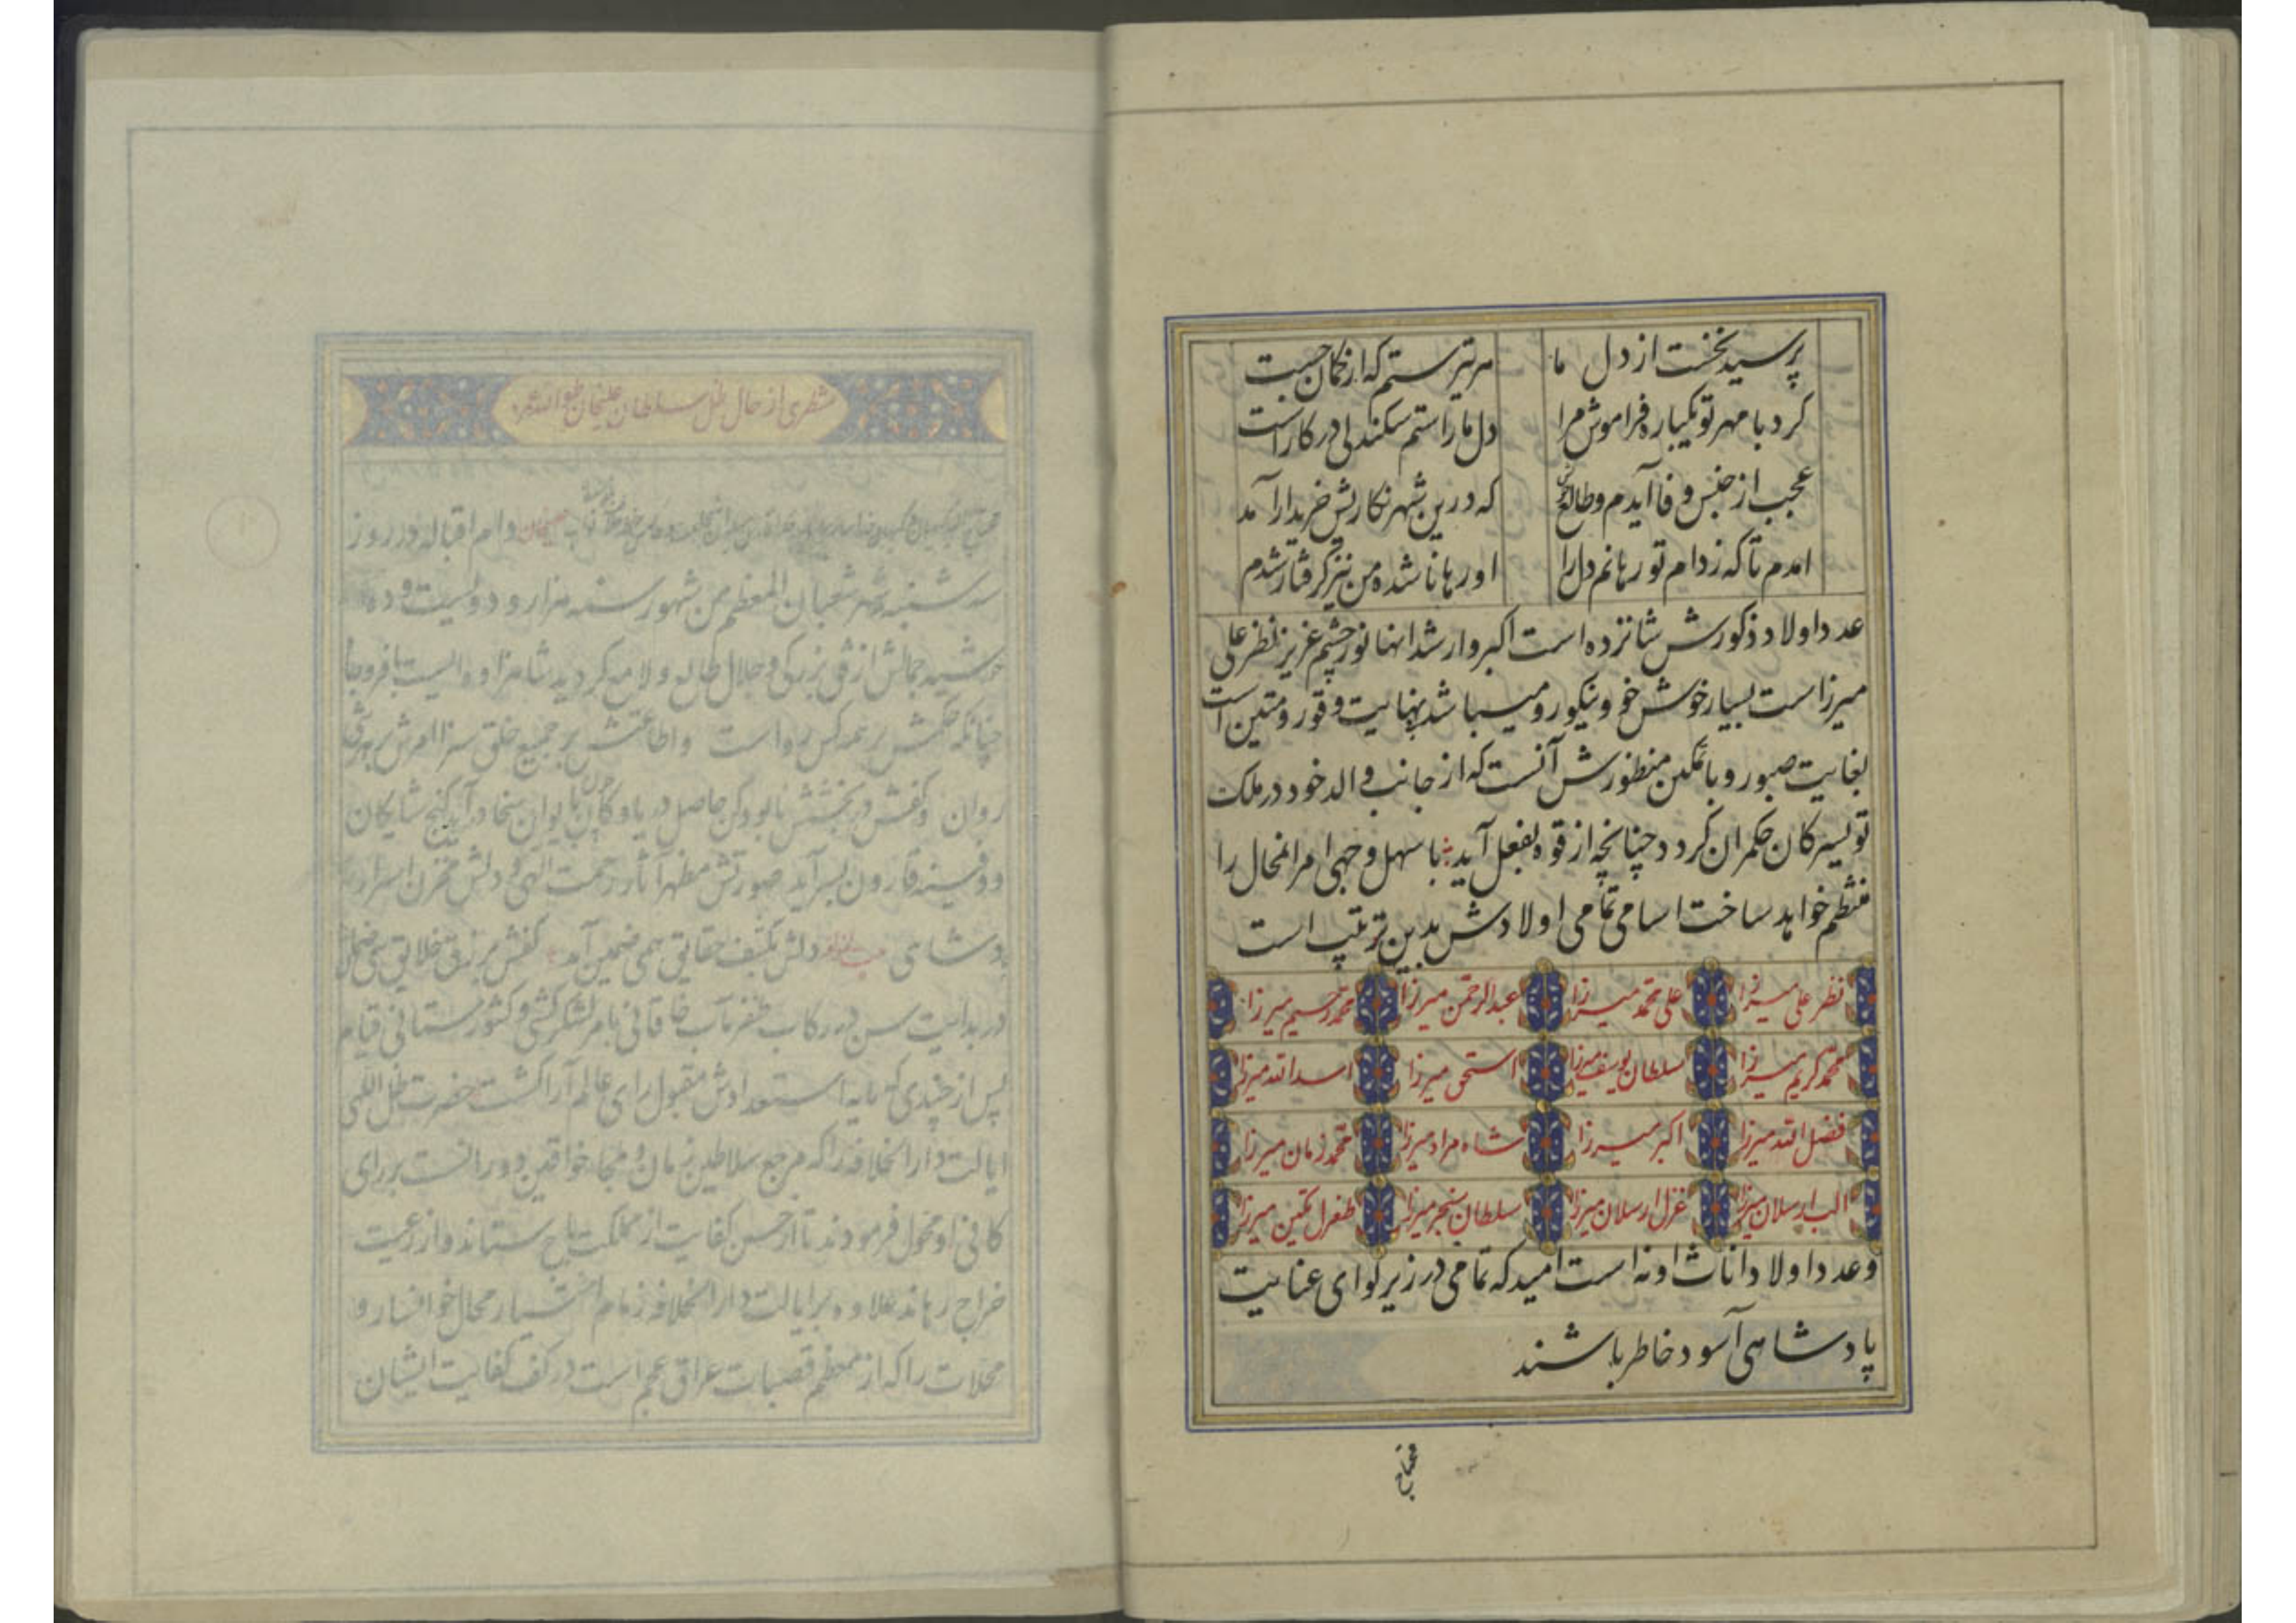 پرسید نخست از دل ما
هر تیر ستم که از کمان جست
کرد با مهر تو یکباره فراموش مرا
دل ما را ستم سکندلی در کار است
عجب از جنس وفا آیدم و طالع
که درین شهر نکارش خریدار آمد
امدم تا که ز دام تو رهانم دل را
او رها ناشده من نیز کرفتار شدم
عدد اولاد ذکورش شانزده است اکبر و ارشد انها نور چشم عزیز نظر علی
میرزا است بسیار خوش خو و نیکو رو میباشد بنهایت وقور و متین است
بغایت صبور و با تمکین منظورش آنست که از جانب والد خود در ملک
تویسرکان حکمران کردد چنانچه از قوه بفعل آید با سهل وجهی امر المحال را
منظم خواهد ساخت اسامی تمامی اولادش بدین ترتیب است
نظر علی میرزا علی محمد میرزا عبدالرحمن میرزا محمد رحیم میرزا
محمد کریم میرزا سلطان یوسف میرزا اسحق میرزا اسدالله میرزا
فضل الله میرزا اکبر میرزا شاه مراد میرزا محمد زمان میرزا
الب ارسلان میرزا غزل ارسلان میرزا سلطان سنجر میرزا طغرل تکین میرزا
و عدد اولاد اناث او نه است امید که تمامی در زیر لوای عنایت
پادشاهی آسود خاطر باشند
شطری از حال ظل سلطان علیخان
دام اقباله در روز
سه شنبه شهر شعبان المعظم من شهور سنه هزار و دویست و ده
خورشید جمالش از افق بزرکی و جلال طالع و لامع کردید شاهزاده ایست با فر و بها
چنانکه حکمش بر همه کس رواست و اطاعتش بر جمیع خلق سزا امرش
روان و کفش در بخشش حاصل دریا و کان با یوان سخا در آید کنج شایکان
و دفینه قارون بسر آید صورتش مظهر آثار رحمت الهی و دلش مخزن اسرار
پادشاهی دلش بکشف حقایق همی ضمین آمد کفش برزق خلایق همی ضمان
در بدایت سن در رکاب ظفر مآب خاقانی بامر لشکرکشی و کشورستانی قیام
پس از چندی که مایه استعدادش مقبول رای عالم آرا کشت حضرت ظل اللهی
ایالت دار الخلافه را که مرجع سلاطین زمان و ملجاء خواقین دورانست برای
کافی او محول فرمودند تا از حسن کفایت از مملکت باج ستاند و از رعیت
خراج رهاند علاوه بر ایالت دار الخلافه زمام اختیار محال خوافسار و
محلات را که از معظم قصبات عراق عجم است در کف کفالیت ایشان